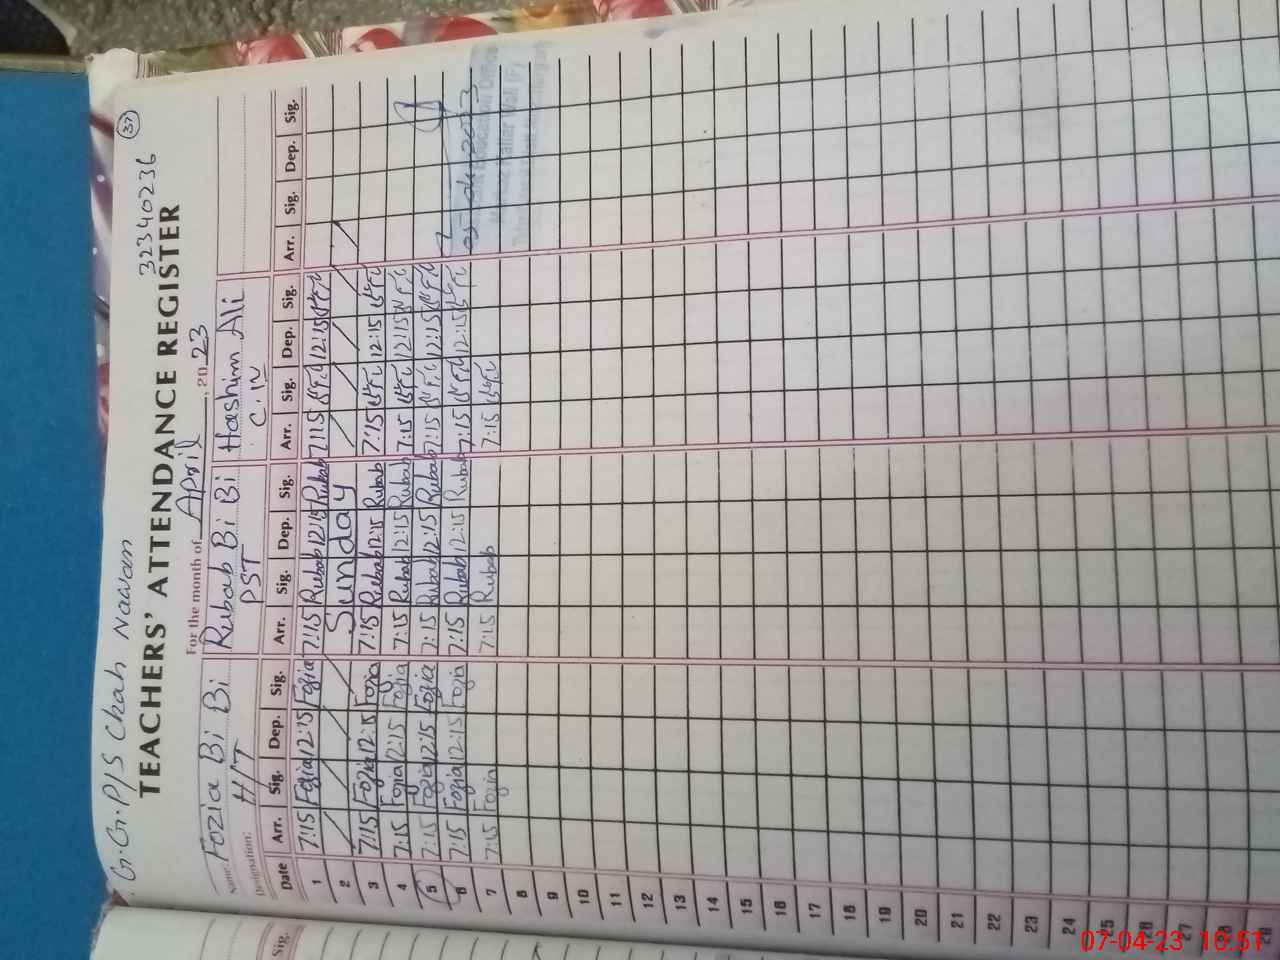 G.G.P/S Chah Nawan
32340236
37
TEACHERS' ATTENDANCE REGISTER
For the month of April, 2023
Name: Fozia Bi Bi Rubab Bi Bi Hashim Ali
Designation: H/T PST C.IV
Date Arr. Sig. Dep. Sig. Arr. Sig. Dep. Sig. Arr. Sig. Dep. Sig. Arr. Sig. Dep. Sig.
1 7:15 Fozia 12:15 Fozia 7:15 Rubab 12:15 Rubab 7:15 12:15
2 Sunday
3 7:15 Fozia 12:15 Fozia 7:15 Rubab 12:15 Rubab 7:15 12:15
4 7:15 Fozia 12:15 Fozia 7:15 Rubab 12:15 Rubab 7:15 12:15
5 7:15 Fozia 12:15 Fozia 7:15 Rubab 12:15 Rubab 7:15 12:15
6 7:15 Fozia 12:15 Fozia 7:15 Rubab 12:15 Rubab 7:15 12:15
7 7:15 Fozia 7:15 Rubab 7:15
8
9
10
11
12
13
14
15
16
17
18
19
20
21
22
23
24
25
26
27
28
29
05-04-2023
Education Officer
Sig.
07-04-23 10:51